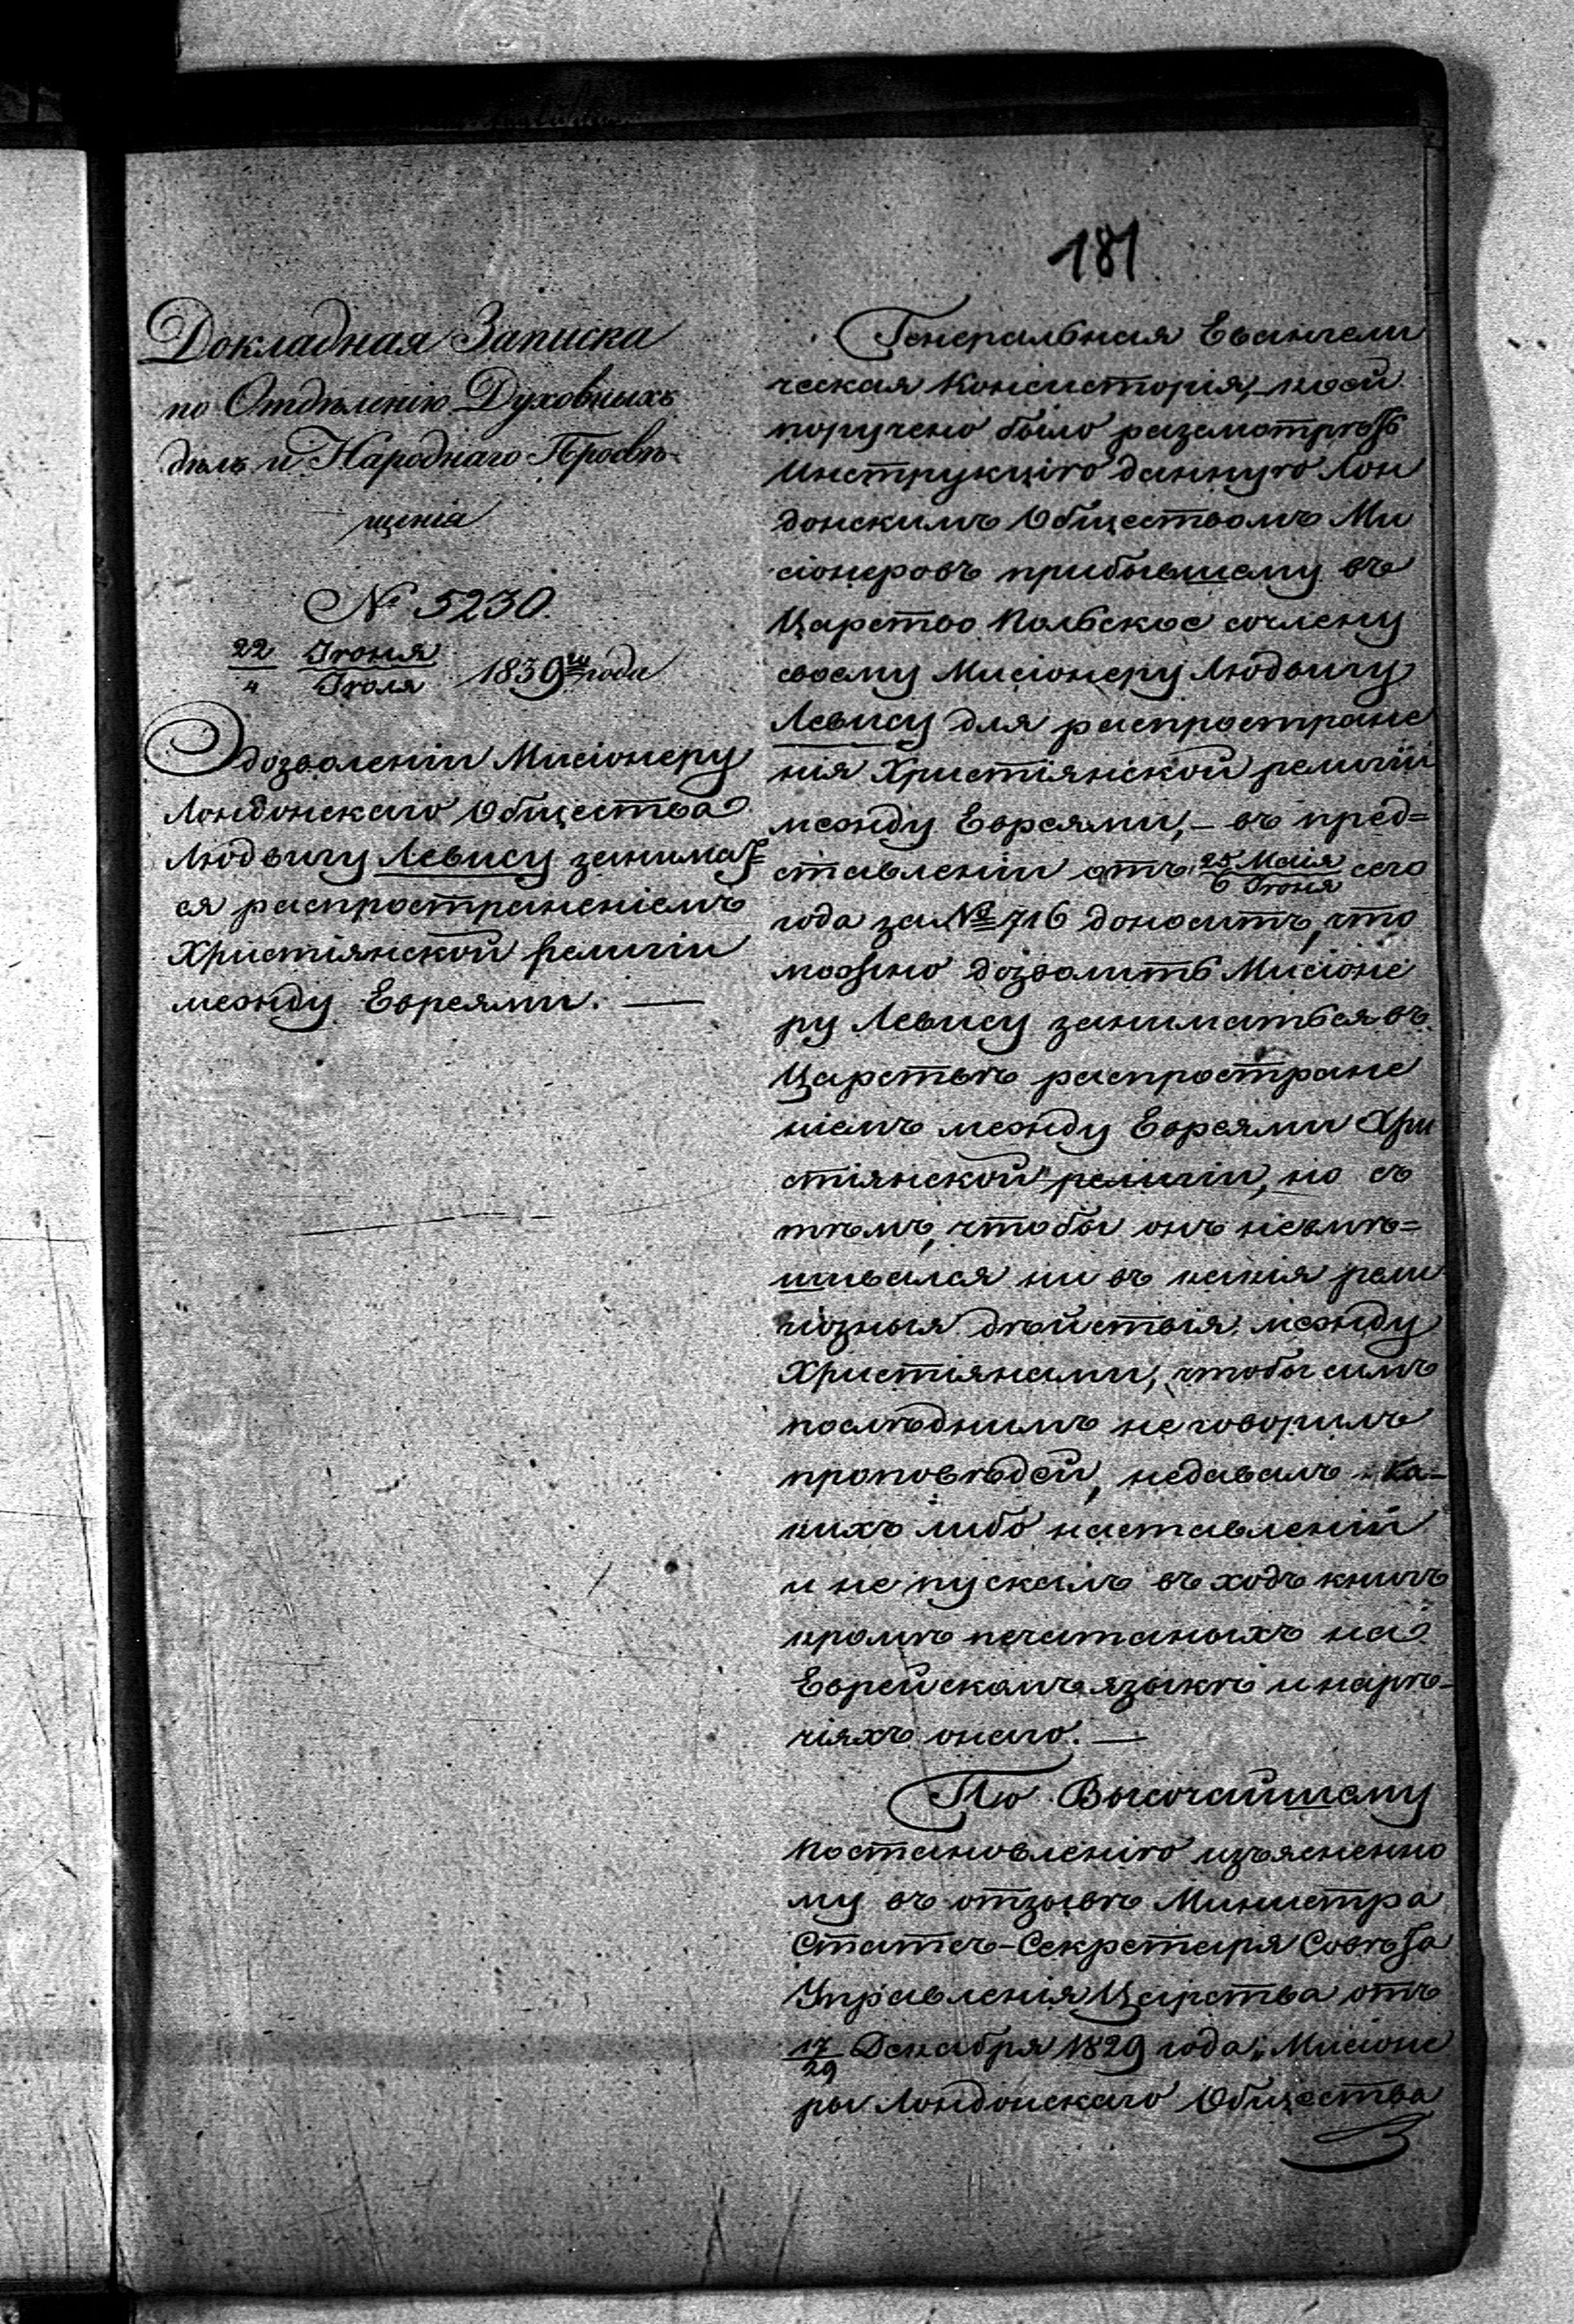 181
Докладная Записка
по Отдѣленію Духовныхъ
дѣлъ и Народнаго Просвѣ-
щенія
№ 5230.
22 Іюня / 4 Іюля 1839го года
О дозволеніи Мисіонеру
Лондонскаго Общества
Людвигу Левису занимать=
ся распространеніемъ
Христіянской религіи
между Евреями. —
Генеральная Евангели
ческая Консисторія, коей
поручено было разсмотрѣть
Инструкцію данную Лон
донскимъ Обществомъ Ми
сіонеровъ прибывшему въ
Царство Польское сочлену
своему Мисіонеру Людвигу
Левису для распростране
нія Христіянской религіи
между Евреями, — въ пред=
ставленіи отъ 25 Маія / 6 Іюня сего
года за № 716 доноситъ, что
можно дозволить Мисіоне
ру Левису заниматься въ
Царствѣ распростране
ніемъ между Евреями Хри
стіянской религіи, но съ
тѣмъ, чтобы онъ невмѣ=
шивался ни въ какія рели
гіозныя дѣйствія между
Христіянами, чтобы симъ
послѣднимъ не говорилъ
проповѣдей, недавалъ ка-
кихъ либо наставленій
и не пускалъ въ ходъ книгъ
кромѣ печатаныхъ на
Еврейскомъ языкѣ и нарѣ-
чіяхъ онаго. —
По Высочайшему
постановленію изъясненно
му въ отзывѣ Министра
Статсъ-Секретаря Совѣта
Управленія Царства отъ
17/29 Декабря 1829 года, Мисіоне
ры Лондонскаго Общества